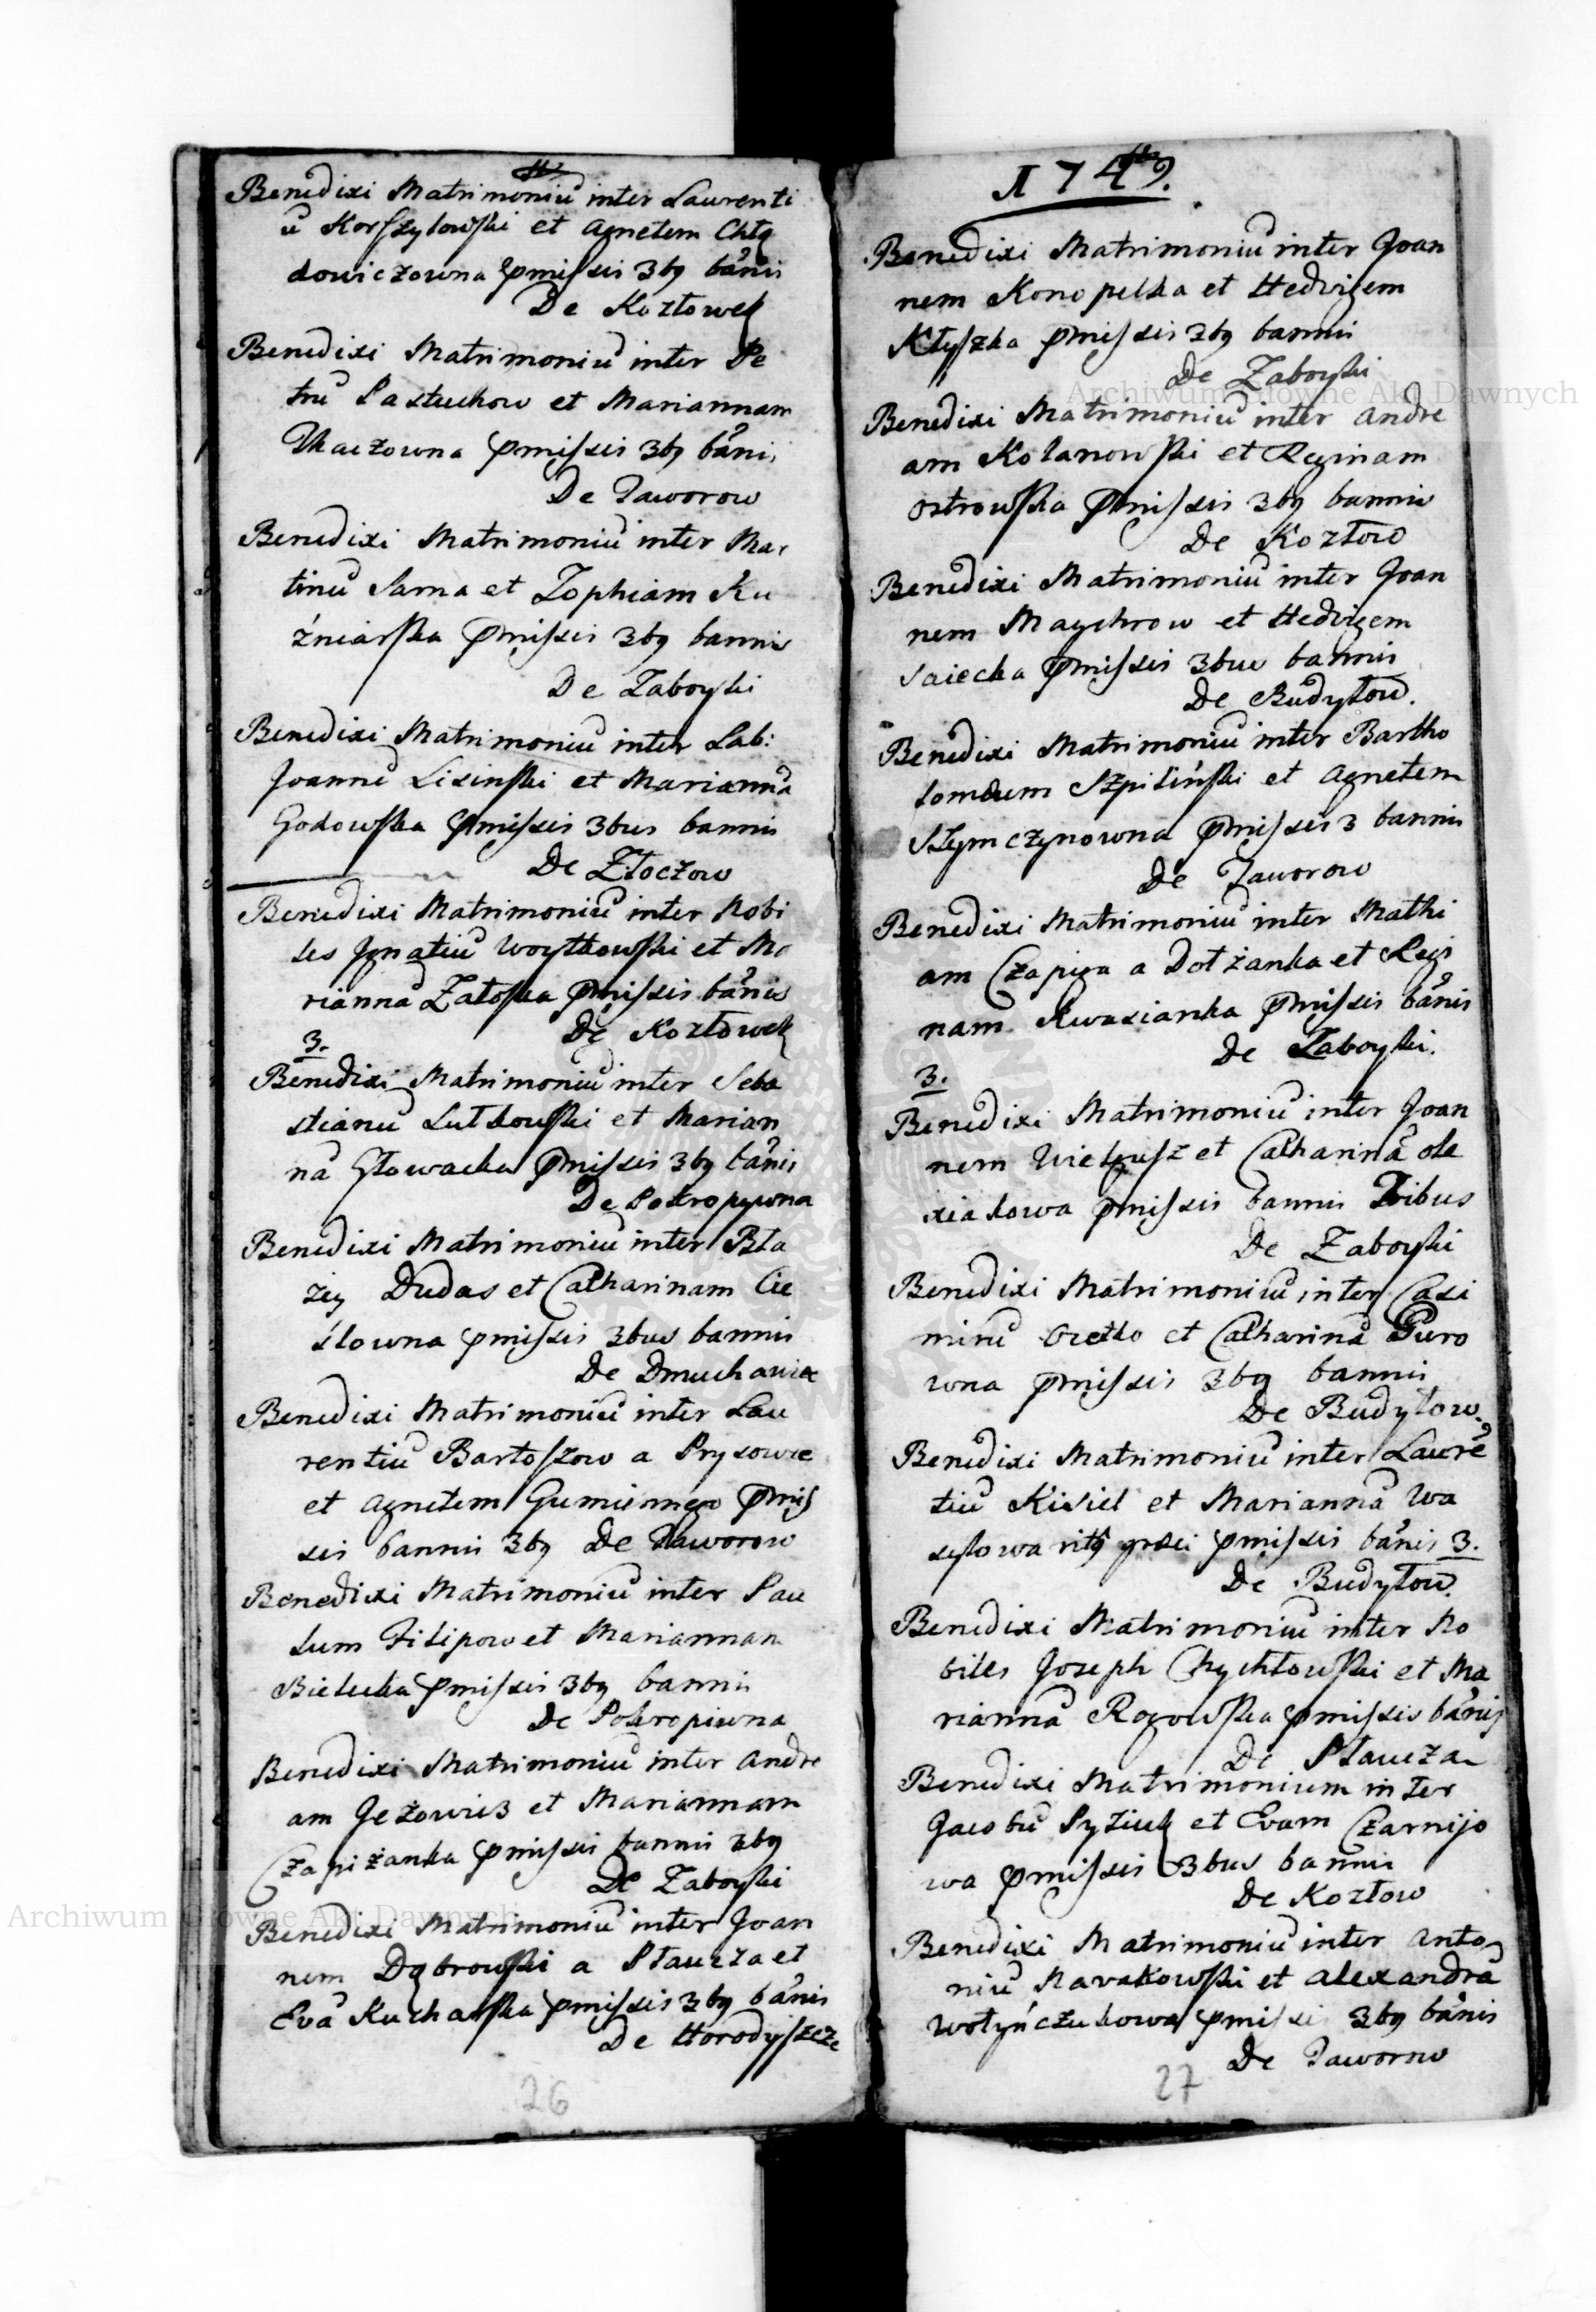 Benedixi Matrimoniũ inter Laurenti
ũ Korszylowski et Agnetem Chłą
dowiczowna pmissis 3bq bãnis
De Kozłowek
Benedixi Matrimoniũ inter Pe
trũ Pastuchow et Mariannam
Tkaczowna pmissis 3bq bãnis
De Jaworow
Benedixi Matrimoniũ inter Mar
tinũ Sarna et Zophiam Ku
źniarska pmissis 3bq bannis
De Zaboyki
Benedixi Matrimoniũ inter Lab:
Joannẽ Lisinski et Mariannã
Godowska pmissis 3bus bannis
De Złoczow
Benedixi Matrimoniũ inter Nobi
les Ignatiũ Woytkowski et Ma
riannã Zatoska pmissis bãnis
3. De Kozłowek
Benedixi Matrimoniũ inter Seba
stianũ Lutkowski et Marian
nã Głowacka pmissis 3bq bãnis
De Pokropywna
Benedixi Matrimoniũ inter Bła
żey Dudas et Catharinam Cie
slowna pmissis 3bus bannis
De Dmuchawiec
Benedixi Matrimoniũ inter Lau
rentiũ Bartoszow a Prysowce
et Agnetem Gumiennego pmis
sis bannis 3bq De Jaworow
Benedixi Matrimoniũ inter Pau
lum Filipow et Mariannam
Bielecka pmissis 3bq bannis
De Pokropiwna
Benedixi Matrimoniũ inter Andre
am Jeżowicz et Mariannam
Czapiżanka pmissis bannis 3bq
De Zaboyki
Benedixi Matrimoniũ inter Joan
nem Dąbrowski a Płaucza et
Evã Kucharska pmissis 3bq bãnis
De Horodyszcze
26
A 1749.
Benedixi Matrimoniũ inter Joan
nem Konopelka et Hedvigem
Kłyszka pmissis 3bq bannis
De Zaboyki
Benedixi Matrimoniũ inter Andre
am Kolanowski et Reginam
Ostrowska pmissis 3bq bannis
De Kozłow
Benedixi Matrimoniũ inter Joan
nem Maychrow et Hedvigem
Saiecka pmissis 3bus bannis
De Budyłow.
Benedixi Matrimoniũ inter Bartho
lomeum Szpiliński et Agnetem
Szymczynowna pmissis 3 bannis
De Jaworow
Benedixi Matrimoniũ inter Mathi
am Czapiga a Dołżanka et Regi
nam Kwasianka pmissis bãnis
De Zaboyki.
3.
Benedixi Matrimoniũ inter Joan
nem Wielgusz et Catharinã Ole
xiakowa pmissis bannis Tribus
De Zaboyki
Benedixi Matrimoniũ inter Casi
mirũ Oretko et Catharinã Guro
wna pmissis 3bq bannis
De Budyłow.
Benedixi Matrimoniũ inter Laurẽ
tiũ Kisiel et Mariannã Wa
sylowa ritq graeci pmissis bãnis 3.
De Budyłow.
Benedixi Matrimoniũ inter No
biles Joseph Chychłowski et Ma
riannã Rogowska pmissis bãnis
De Płaucza
Benedixi Matrimonium inter
Jacobũ Pyziuk et Evam Czarnijo
wa pmissis 3bus bannis
De Kozłow
Benedixi Matrimoniũ inter Anto
niũ Narakowski et Alexandrã
Wołyńczukowa pmissis 3bq bãnis
De Jaworow
27
Archiwum Główne Akt Dawnych
Archiwum Główne Akt Dawnych